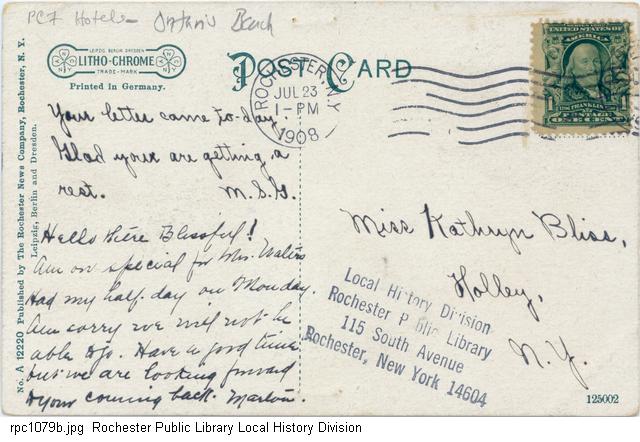 PCF Hotels - Ontario Beach
LEIPZIG BERLIN DRESDEN
LITHO-CHROME
TRADE-MARK
Printed in Germany.
POST CARD
ROCHESTER, N.Y.
JUL 23
1-PM
1908
UNITED STATES OF AMERICA
1 FRANKLIN 1
POSTAGE
ONE CENT
Your letter came to-day
Glad you are getting a
rest. M.S.G.
Hello there Blissful!
Am on special for Mrs. Waters
Had my half day on Monday.
Am sorry we will not be
able to go. Have a good time
but we are looking forward
to your coming back. Marion.
Miss Kathryn Bliss,
Holley,
N.Y.
Local History Division
Rochester Public Library
115 South Avenue
Rochester, New York 14604
No. A 12220 Published by The Rochester News Company, Rochester, N. Y.
Leipzig, Berlin and Dresden.
125002
rpc1079b.jpg Rochester Public Library Local History Division